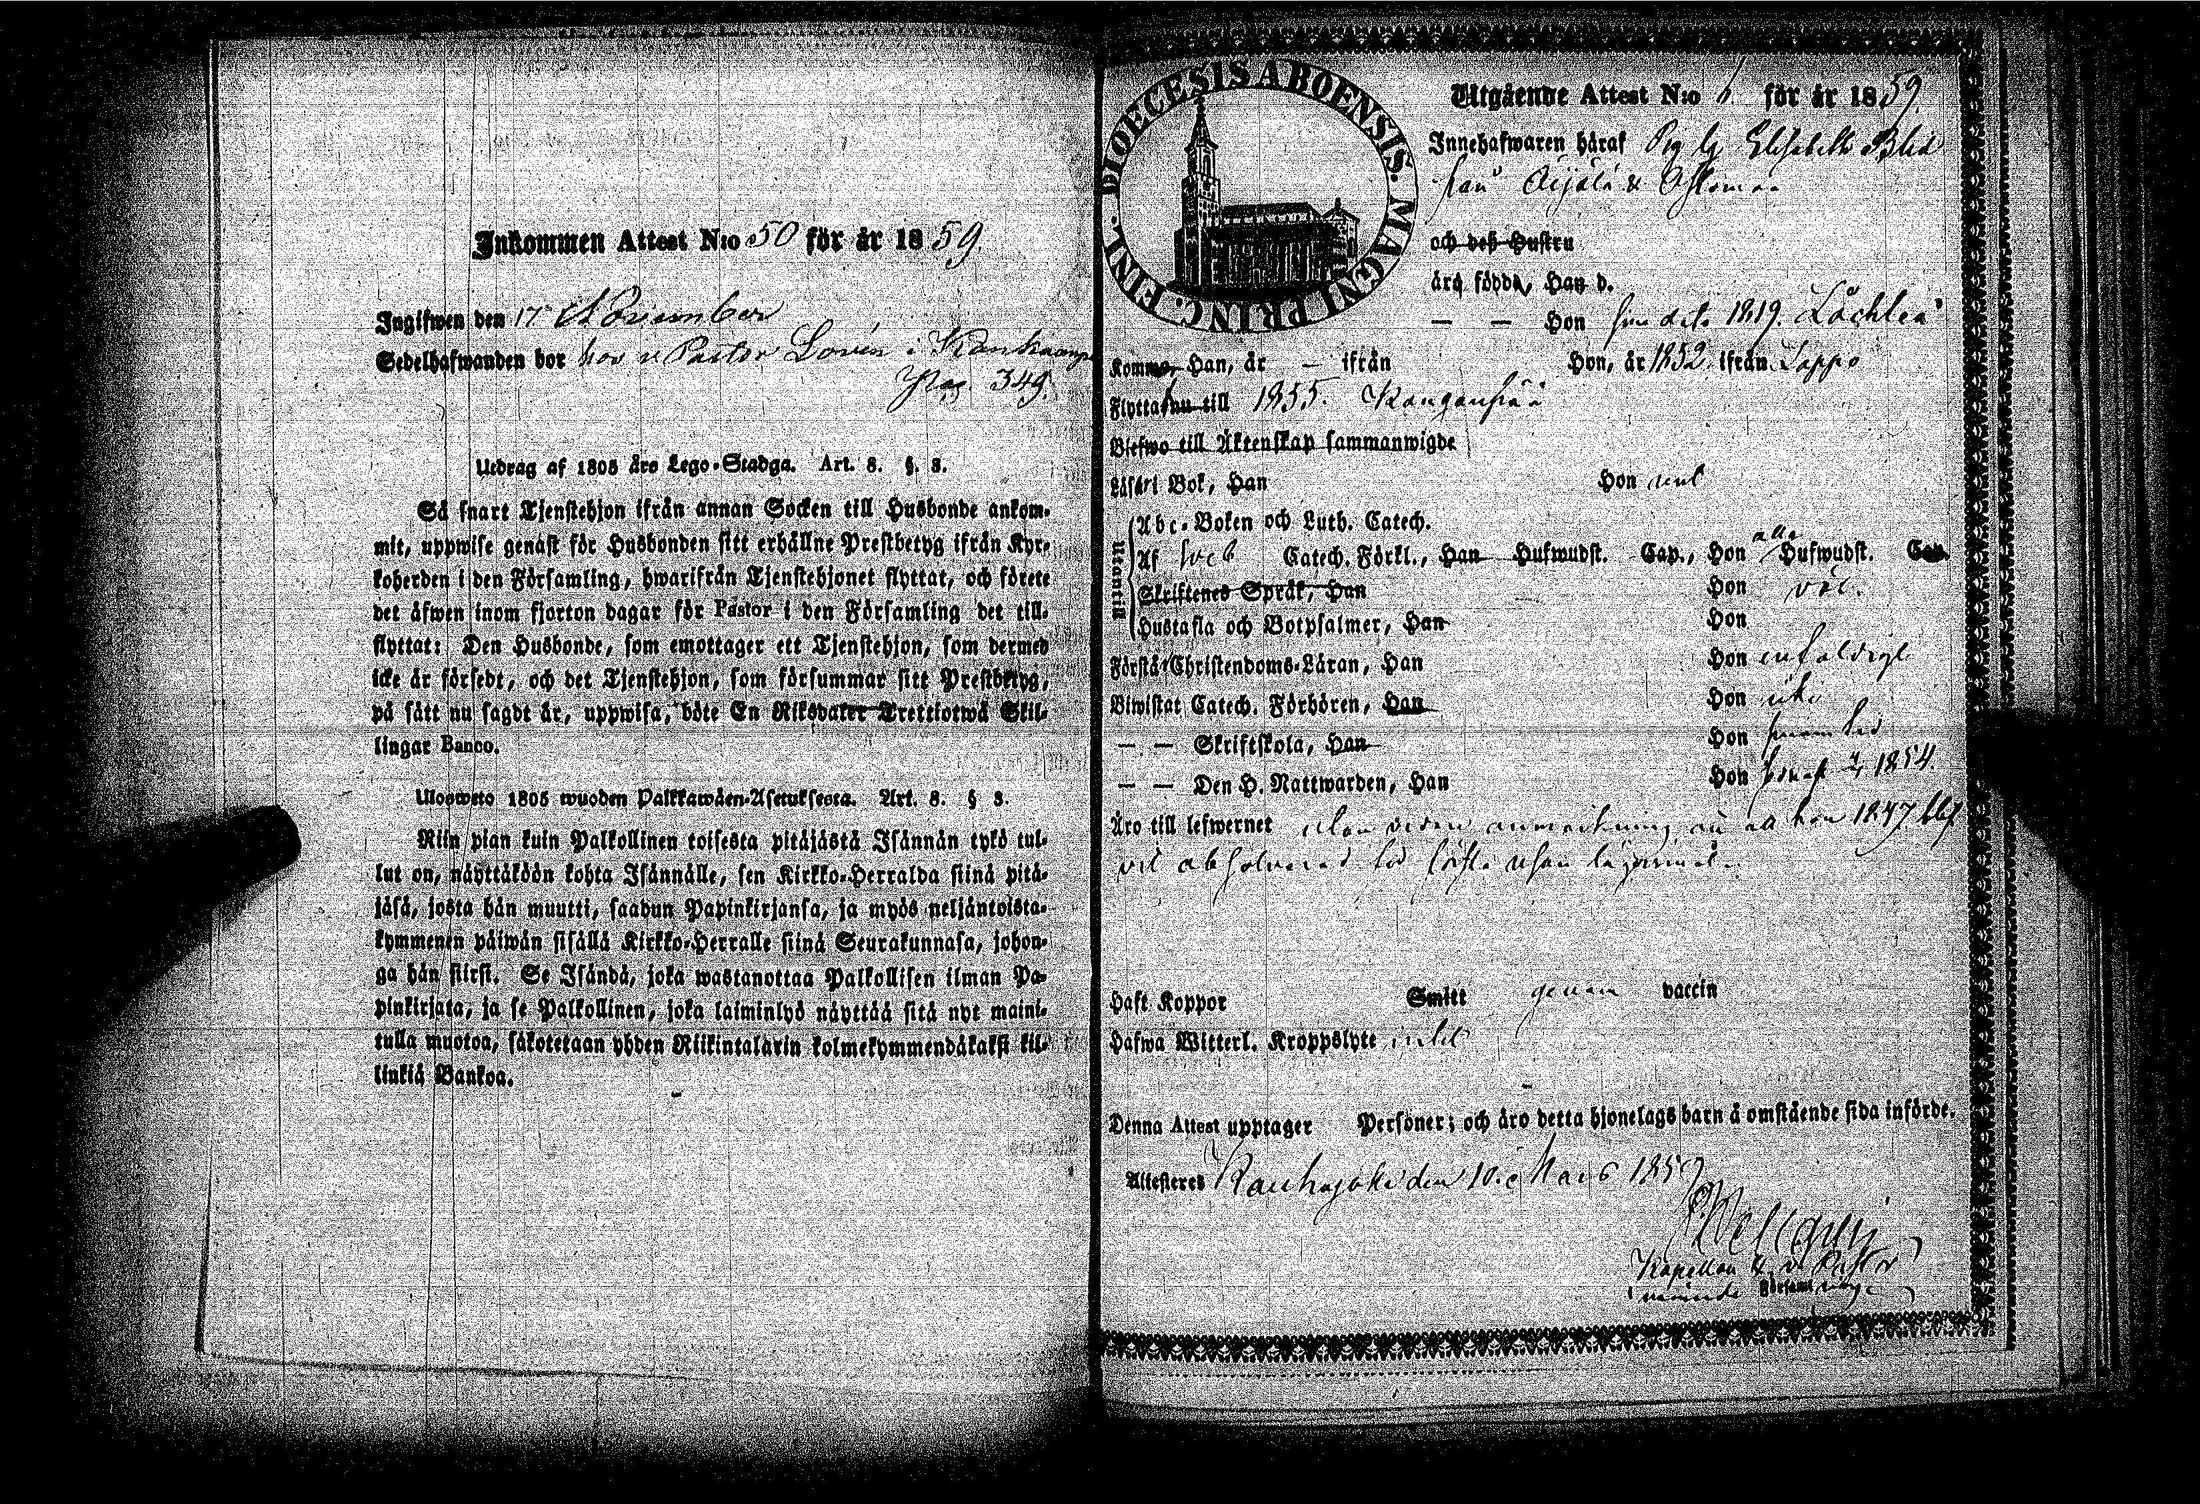 Inkommen Attest N:o 50 för år 1859.
Ingifwen den 17 November
Sedelhafwanden bor hos v Pastor Lovén i Kankaanpä
Pag. 349.
Utdrag af 1805 års Lego-Stadga. Art. 8. §. 8.
Så snart Tjenstehjon ifrån annan Socken till Husbonde ankom-
mit, uppwise genast för Husbonden sitt erhållne Prestbetyg ifrån Kyr-
koherden i den Församling, hwarifrån Tjenstehjonet flyttat, och förete
det äfwen inom fjorton dagar för Pastor i den Församling det till-
flyttat: Den Husbonde, som emottager ett Tjenstehjon, som dermed
icke är försedt, och det Tjenstehjon, som försummar sitt Prestbetyg,
på sätt nu sagdt är, uppwisa, böte En Riksdaler Trettiotwå Skil-
lingar Banco.
Ulosweto 1805 wuoden Palkkawäen-Asetuksesta. Art. 8. § 8.
Niin pian kuin Palkollinen toisesta pitäjästä Isännän tykö tul-
lut on, näyttäköön kohta Isännälle, sen Kirkko-Herralda siinä pitä-
jäsä, josta hän muutti, saadun Papinkirjansa, ja myös neljäntoista-
kymmenen päiwän sisällä Kirkko-Herralle siinä Seurakunnasa, johon-
ga hän siirsi. Se Isändä, joka wastanottaa Palkollisen ilman Pa-
pinkirjata, ja se Palkollinen, joka laiminlyö näyttää sitä nyt maini-
tulla muotoa, sakotetaan yhden Riikintalarin kolmekymmendäkaksi kil-
linkiä Bankoa.
DIOECESIS ABOENSIS. MAGNI PRINC. FINL.
Utgående Attest N:o 6 för år 1859.
Innehafwaren häraf Pig Elisabeth
från
och deß Hustru
äro födde, Han d.
— — Hon 1819. Låchteå
Komme, Han, år — ifrån Hon, år 1852 ifrån Lappo
Flytta nu till 1855. Kanganpää
Blefwo till Äktenskap sammanwigde
Läsa i Bok, Han Hon väl
Utantill
Abc-Boken och Luth. Catech.
Af Sveb Catech. Förkl., Han Hufwudst. Cap., Hon alla Hufwudst. Cap.
Skriftenes Språk, Han Hon väl.
Hustafla och Botpsalmer, Han Hon
Förstå Christendoms-Läran, Han Hon enfaldigt
Biwistat Catech. Förhören, Han Hon
— — Skriftskola, Han Hon
— — Den H. Nattwarden, Han Hon 1854.
Äro till lefwernet utan anmärkning än att hon 1847 blef
absolverad utan
Haft Koppor Smitt genom vaccin
Hafwa Witterl. Kroppslyte intet
Denna Attest upptager Personer; och äro detta hjonelags barn å omstående sida införde.
Attesteres Kauhajoki den 10 Mars 1859
Kapellan & v. Pastor
Församl